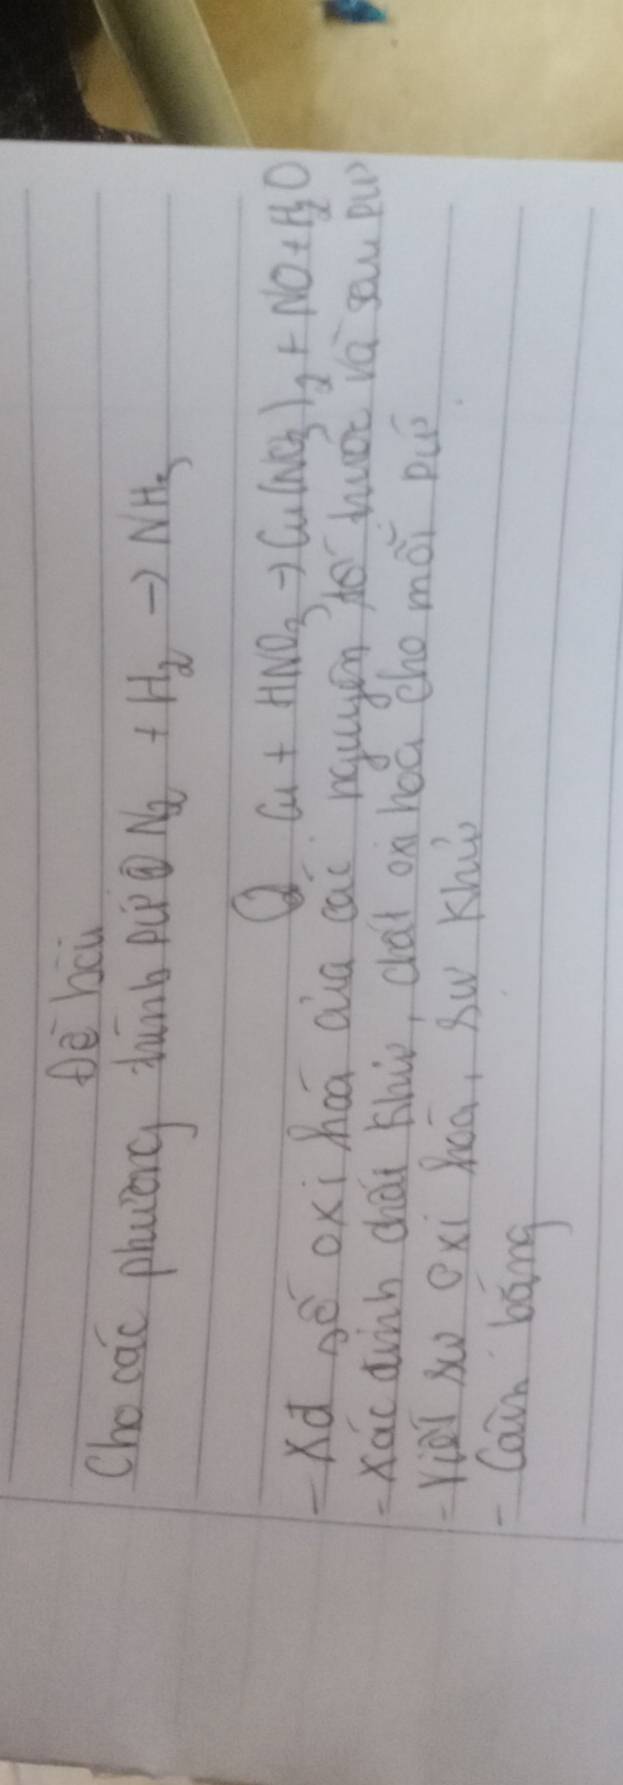 Đề bài
Cho các phương trình pư ① N₂ + H₂ → NH₃
② Cu + HNO₃ → Cu(NO₃)₂ + NO + H₂O
- Xđ số oxi hóa của các nguyên tố trước và sau pư
- Xác định chất khử, chất oxi hoá cho mỗi pư
- Viết sự oxi hóa, sự khử
- Cân bằng